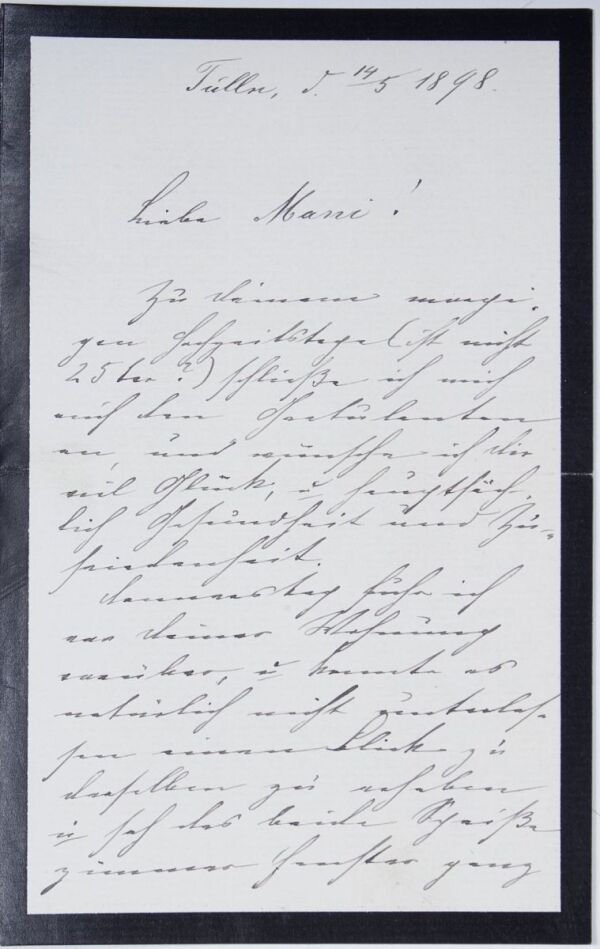 Tulln, d. 14/5 1898.
Liebe Mani!
Zu deinem morgi-
gen Hochzeitstage (ist nicht
25ter?) schließe ich mich
auch den Gratulanten
an, und wünsche ich dir
viel Glück, u hauptsäch-
lich Gesundheit und Zu-
friedenheit.
Donnerstag fuhr ich
an deiner Wohnung
vorüber, u konnte es
natürlich nicht unterlas-
sen einen Blick zu
derselben zu erheben
u sah das beide Speise
zimmer Fenster ganz